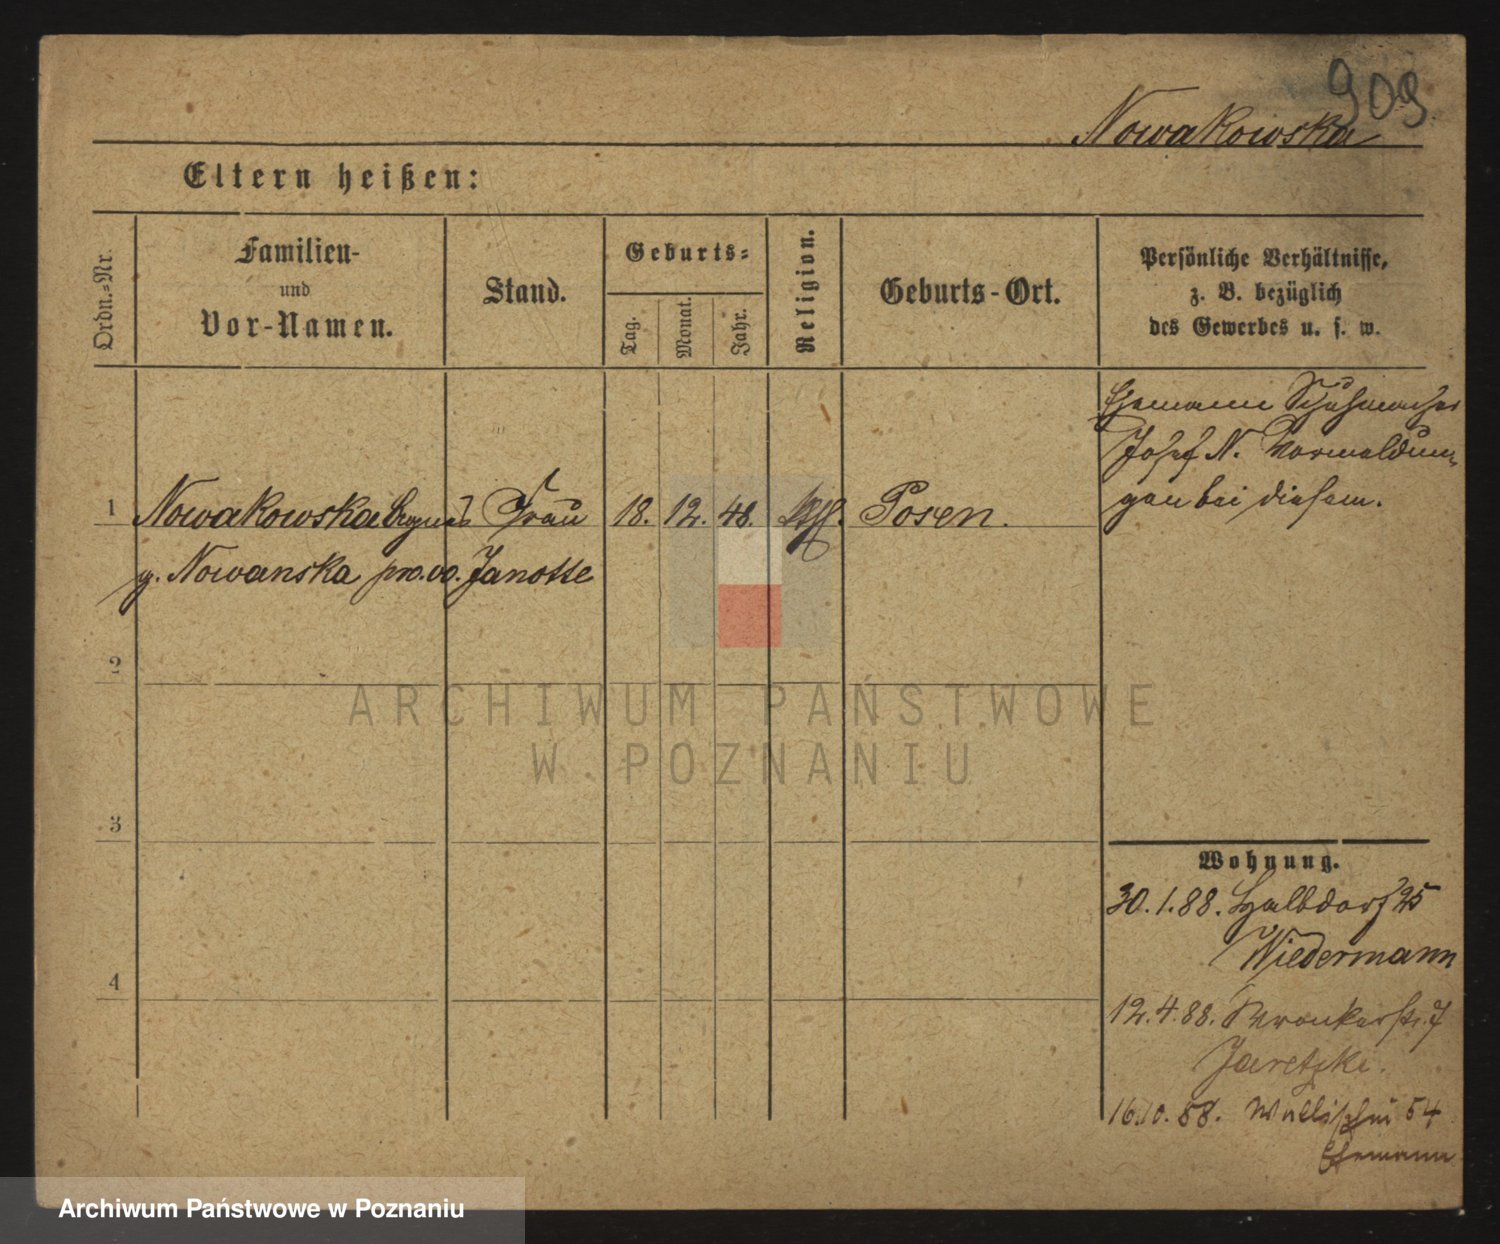 909
Nowakowska
Eltern heißen:
Ordn.=Nr.
Familien-
und
Vor-Namen.
Stand.
Geburts=
Tag.
Monat.
Jahr.
Religion.
Geburts-Ort.
Persönliche Verhältnisse,
z. B. bezüglich
des Gewerbes u. s. w.
Ehemann Schuhmacher
Josef N. Vormeldun
gen bei diesem.
1 Nowakowska Agnes Frau 18. 12. 48. Posen.
g. Nowanska Janotte
2
3
4
Wohnung.
30.1.88. Halbdorf 25
Wiedermann
12.4.88. Wronkerstr. 7
Jaretzki.
16.10.88. Wallischei 54
Ehemann
ARCHIWUM PAŃSTWOWE
W POZNANIU
Archiwum Państwowe w Poznaniu